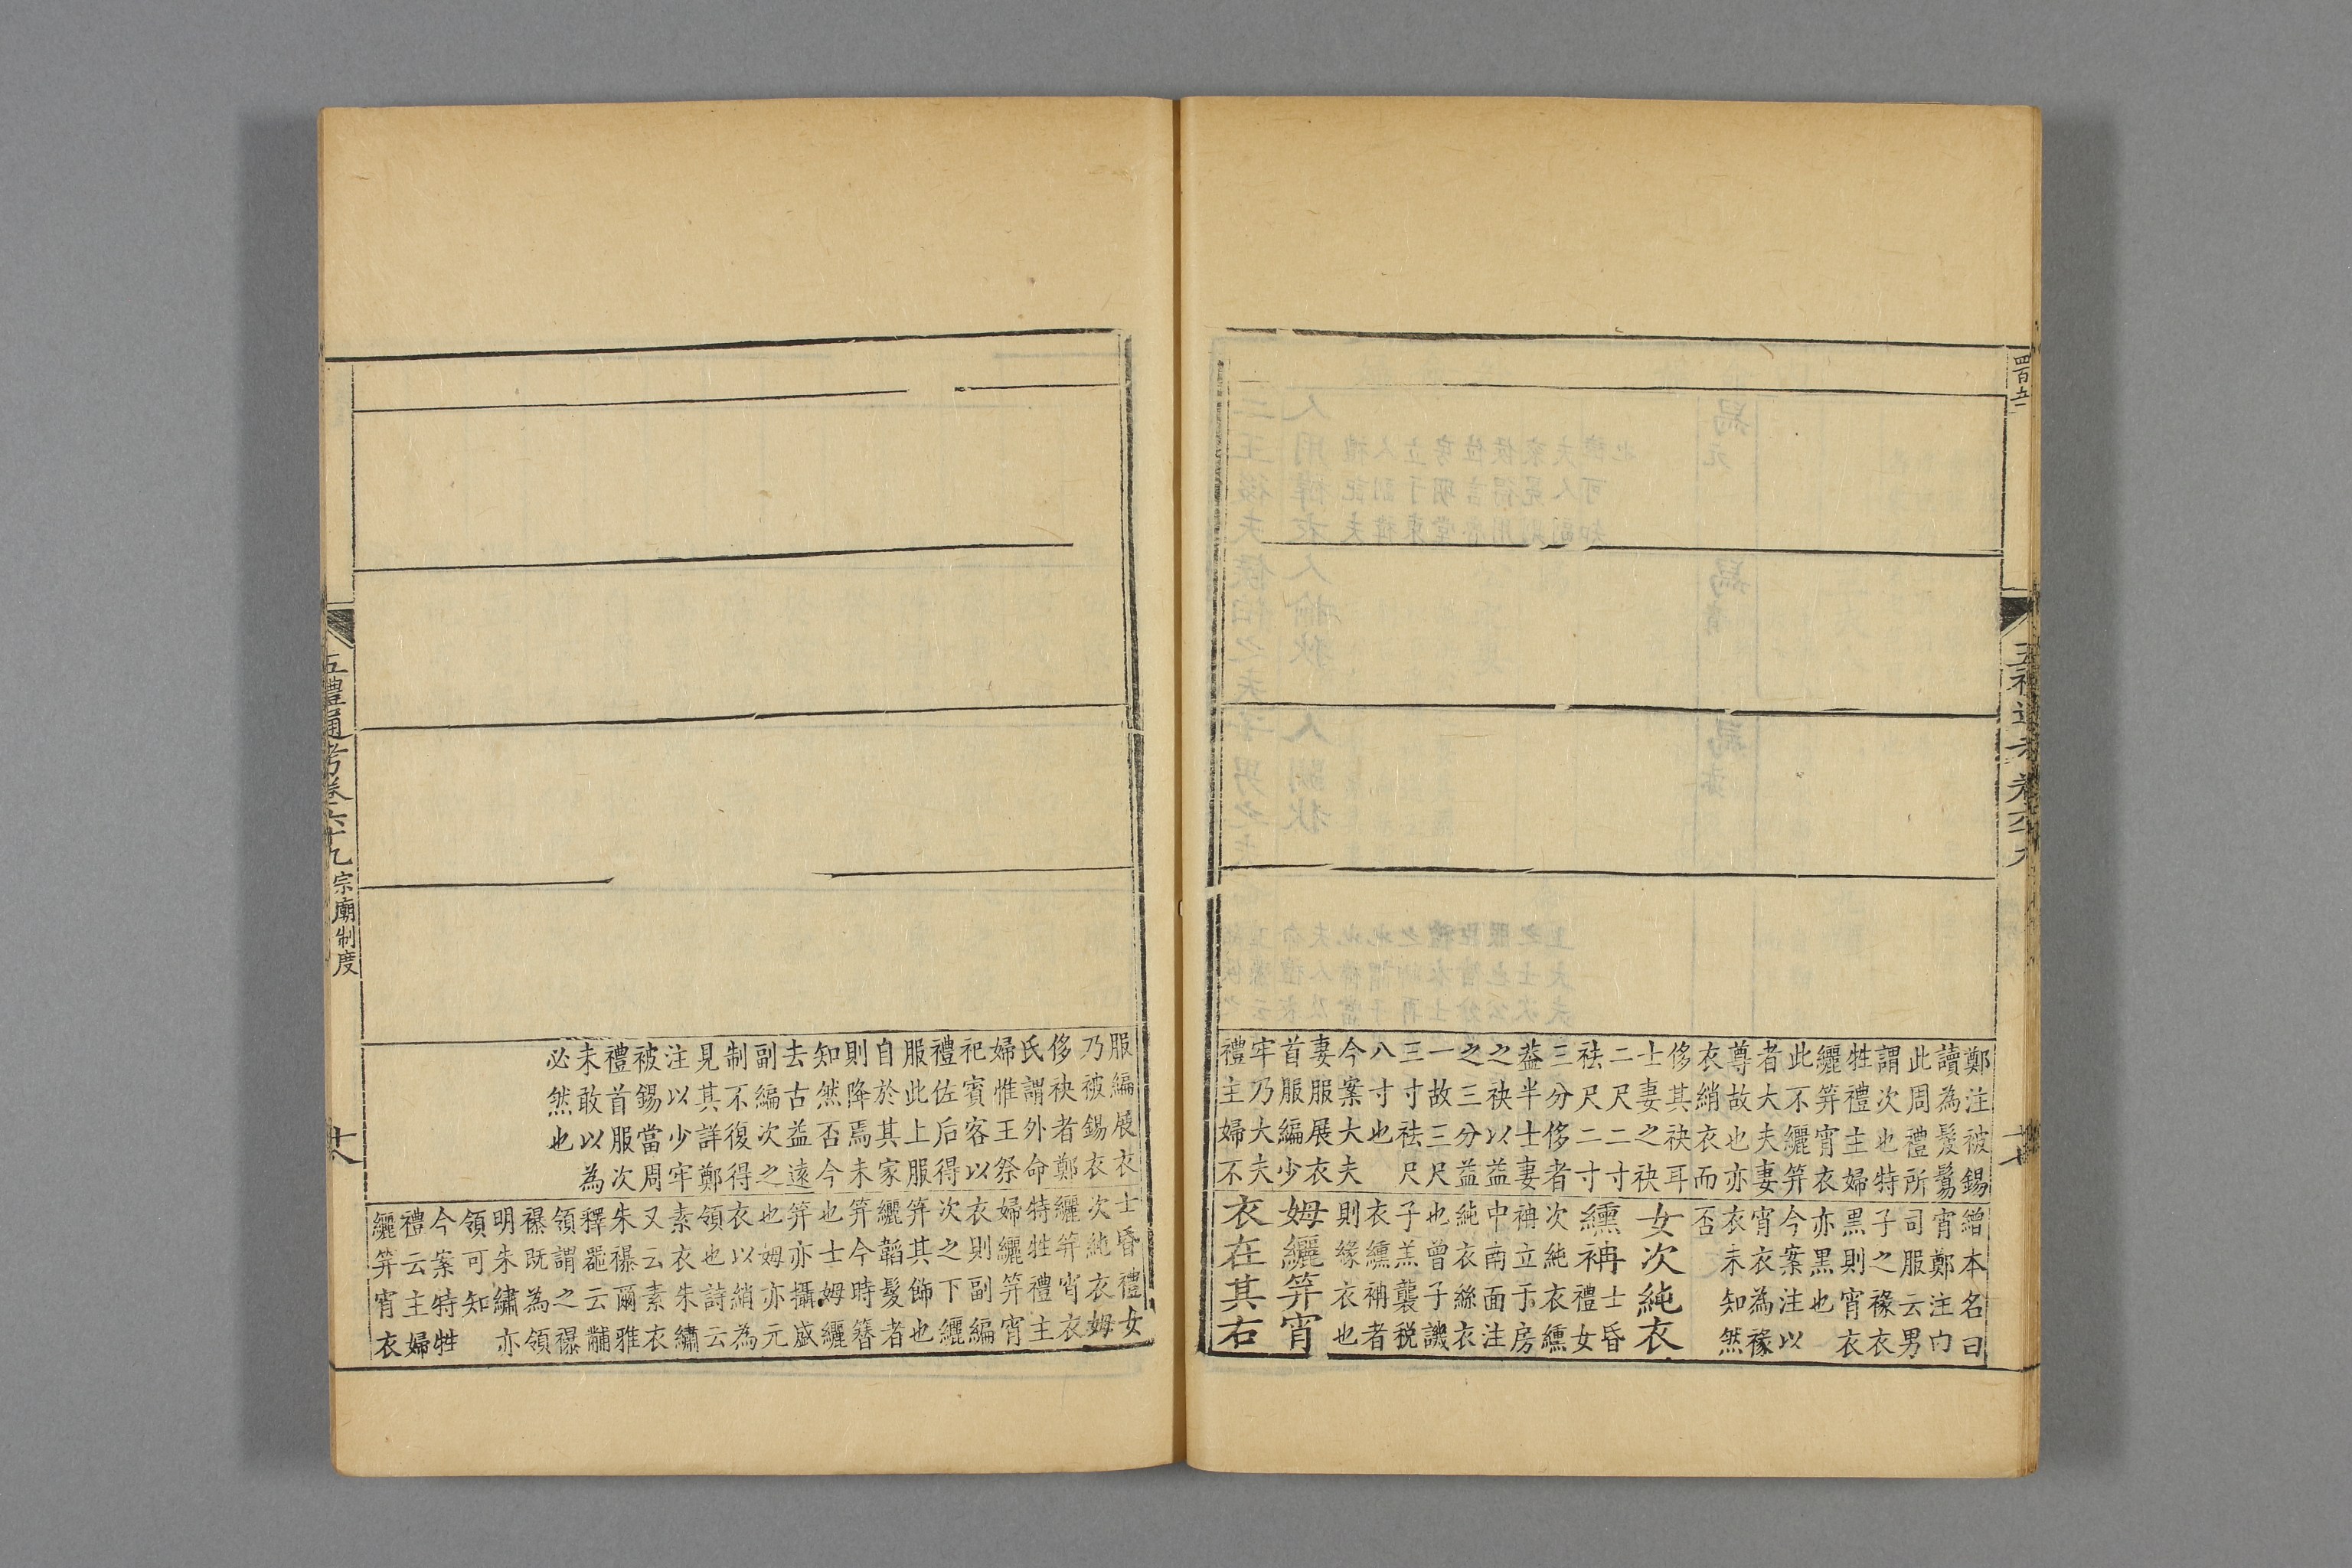 鄭注被錫
讀為髲鬄
此周禮所
謂次也特
牲禮主婦
纚笄宵衣
此不纚笄
者大夫妻
尊故也亦
衣綃衣而
侈其袂耳
士妻之袂
二尺二寸
袪尺二寸
三分侈者
葢半士妻
之袂以益
之三分益
一故三尺
三寸袪尺
八寸也
今案大夫
妻服展衣
首服編少
牢乃大夫
禮主婦不
繒本名曰
宵鄭注内
司服云男
子之褖衣
黑則宵衣
亦黑也
今案注以
宵衣為褖
衣未知然
否
女次純衣
纁袡士昏禮女
次純衣纁
袡立于房
中南面注
純衣絲衣
也曾子譏
子羔襲税
衣纁袡者
則緣衣也
姆纚笄宵
衣在其右
服編展衣
乃被錫衣
侈袂者鄭
氏謂外命
婦惟王祭
祀賓客以
禮佐后得
服此上服
自於其家
則降焉未
知然否今
去古益遠
副編次之
制不復得
見其詳鄭
注以少牢
被錫當周
禮首服次
未敢以為
必然也
士昏禮女
次純衣姆
纚笄宵衣
特牲禮主
婦纚笄宵
衣則副編
次之下纚
笄其飾也
纚韜髮者
笄今時簪
也士姆纚
笄亦攝盛
也姆亦元
衣以綃為
領也詩云
素衣朱繡
又云素衣
朱襮爾雅
釋器云黼
領謂之襮
襮既為領
明朱繡亦
領可知
今案特牲
禮云主婦
纚笄宵衣
五禮通考卷六十九 宗廟制度
十八